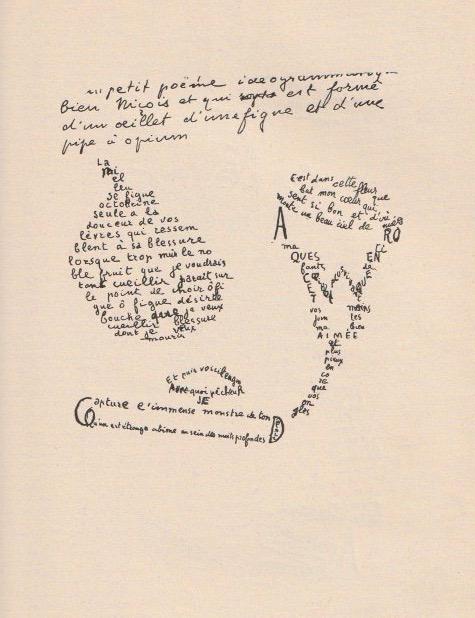 petit poëme ideogrammatique
bien Niçois et qui est formé
d'un œillet d'une figue et d'une
pipe à opium
La
mi
el
leu
se figue
octobrine
seule a la
douceur de vos
lèvres qui ressem
blent à sa blessure
lorsque trop mûr le no
ble fruit que je voudrais
tant cueillir paraît sur
le point de choir ô fi
gue ô figue désirée
bouche que je veux
cueillir blessure
dont je veux
mourir
C'est dans cette fleur
bat mon cœur qui
sent si bon et d'où
monte un beau ciel de nuées
A
RO
ma
QUES
EN
vos
mains
les
ma
bien
AIMÉE
et
plus
en
co
re
que
vos
on
gles
Et puis voici l'engin
Avec quoi pêcheur
JE
Capture l'immense monstre de ton
Qu'un art étrange abîme au sein des nuits profondes